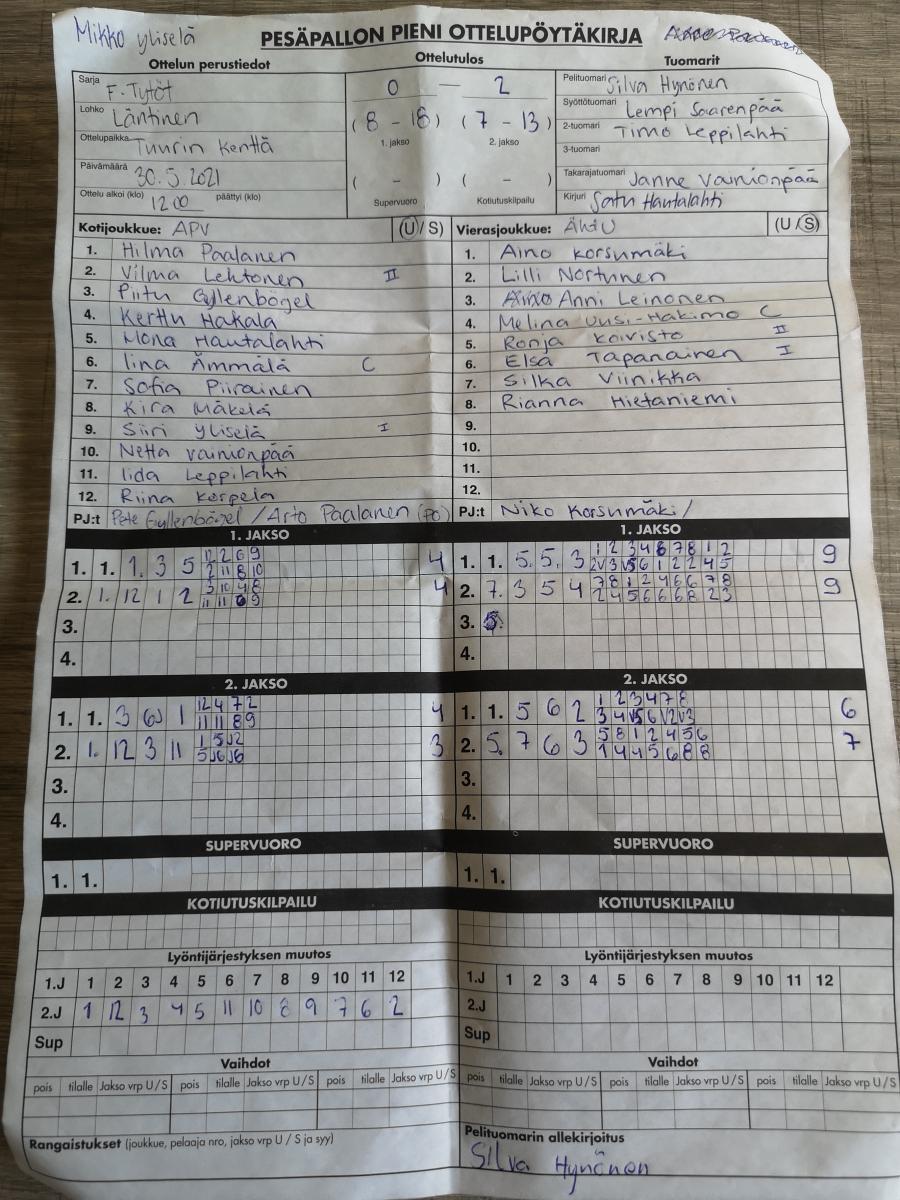 Mikko Yliselä
PESÄPALLON PIENI OTTELUPÖYTÄKIRJA
Ottelun perustiedot
Sarja F-Tytöt
Lohko Läntinen
Ottelupaikka Tuurin kenttä
Päivämäärä 30.5.2021
Ottelu alkoi (klo) 12.00 päättyi (klo)
Ottelutulos
0 – 2
(8 - 18) (7 - 13)
1. jakso 2. jakso
( - ) ( - )
Supervuoro Kotiutuskilpailu
Tuomarit
Pelituomari Silva Hynönen
Syöttötuomari Lempi Saarenpää
2-tuomari Timo Leppilahti
3-tuomari
Takarajatuomari Janne Vainionpää
Kirjuri Satu Hautalahti
Kotijoukkue: APV (U/S)
1. Hilma Paalanen
2. Vilma Lehtonen II
3. Piitu Gyllenbögel
4. Kerttu Hakala
5. Mona Hautalahti
6. Iina Ämmälä C
7. Sofia Piirainen
8. Kira Mäkelä
9. Siiri Yliselä I
10. Netta Vainionpää
11. Iida Leppilahti
12. Riina Korpela
PJ:t Pete Gyllenbögel / Arto Paalanen (PO)
Vierasjoukkue: ÄhtU (U/S)
1. Aino Korsumäki
2. Lilli Nortunen
3. Anni Leinonen
4. Melina Uusi-Hakimo C
5. Ronja Koivisto II
6. Elsa Tapanainen I
7. Silka Viinikka
8. Rianna Hietaniemi
9.
10.
11.
12.
PJ:t Niko Korsumäki/
1. JAKSO
1. 1. 1. 3 5 12 2 6 9 4
2 11 8 10
2. 1. 12 1 2 3 10 4 8 4
11 11 6 9
3.
4.
1. JAKSO
1. 1. 5. 5. 3 1 2 3 4 6 7 8 1 2 9
2V 3 V5 6 1 2 2 4 5
2. 7. 3 5 4 7 8 1 2 4 6 6 7 8 9
2 4 5 6 6 6 8 2 3
3.
4.
2. JAKSO
1. 1. 3 6J 1 12 4 7 2 4
11 11 8 9
2. 1. 12 3 11 1 5J2 3
5J6J6
3.
4.
2. JAKSO
1. 1. 5 6 2 1 2 3 4 7 8 6
3 4 V5 6 V2 V3
2. 5. 7 6 3 5 8 1 2 4 5 6 7
1 4 4 5 6 8 8
3.
4.
SUPERVUORO
1. 1.
SUPERVUORO
1. 1.
KOTIUTUSKILPAILU
KOTIUTUSKILPAILU
Lyöntijärjestyksen muutos
1.J 1 2 3 4 5 6 7 8 9 10 11 12
2.J 1 12 3 4 5 11 10 8 9 7 6 2
Sup
Lyöntijärjestyksen muutos
1.J 1 2 3 4 5 6 7 8 9 10 11 12
2.J
Sup
Vaihdot
pois tilalle Jakso vrp U/S pois tilalle Jakso vrp U/S pois tilalle Jakso vrp U/S
Vaihdot
pois tilalle Jakso vrp U/S pois tilalle Jakso vrp U/S pois tilalle Jakso vrp U/S
Rangaistukset (joukkue, pelaaja nro, jakso vrp U / S ja syy)
Pelituomarin allekirjoitus
Silva Hynönen